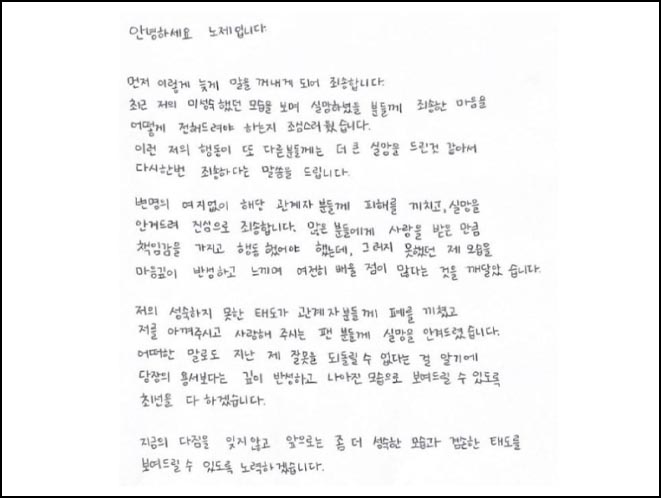 안녕하세요 노제입니다.
먼저 이렇게 늦게 말을 꺼내게 되어 죄송합니다.
최근 저의 미성숙했던 모습을 보며 실망하셨을 분들께 죄송한 마음을
어떻게 전해드려야 하는지 조심스러웠습니다.
이런 저의 행동이 또 다른분들께는 더 큰 실망을 드린것 같아서
다시한번 죄송하다는 말씀을 드립니다.
변명의 여지없이 해당 관계자분들께 피해를 끼치고, 실망을
안겨드려 진심으로 죄송합니다. 많은 분들에게 사랑을 받은 만큼
책임감을 가지고 행동했어야 했는데, 그러지 못했던 제 모습을
마음깊이 반성하고 느끼며 여전히 배울 점이 많다는 것을 깨달았습니다.
저의 성숙하지 못한 태도가 관계자분들께 폐를 끼쳤고
저를 아껴주시고 사랑해 주시는 팬 분들께 실망을 안겨드렸습니다.
어떠한 말로도 지난 제 잘못을 되돌릴 수 없다는 걸 알기에
당장의 용서보다는 깊이 반성하고 나아진 모습으로 보여드릴 수 있도록
최선을 다 하겠습니다.
지금의 다짐을 잊지않고 앞으로는 좀 더 성숙한 모습과 겸손한 태도를
보여드릴 수 있도록 노력하겠습니다.